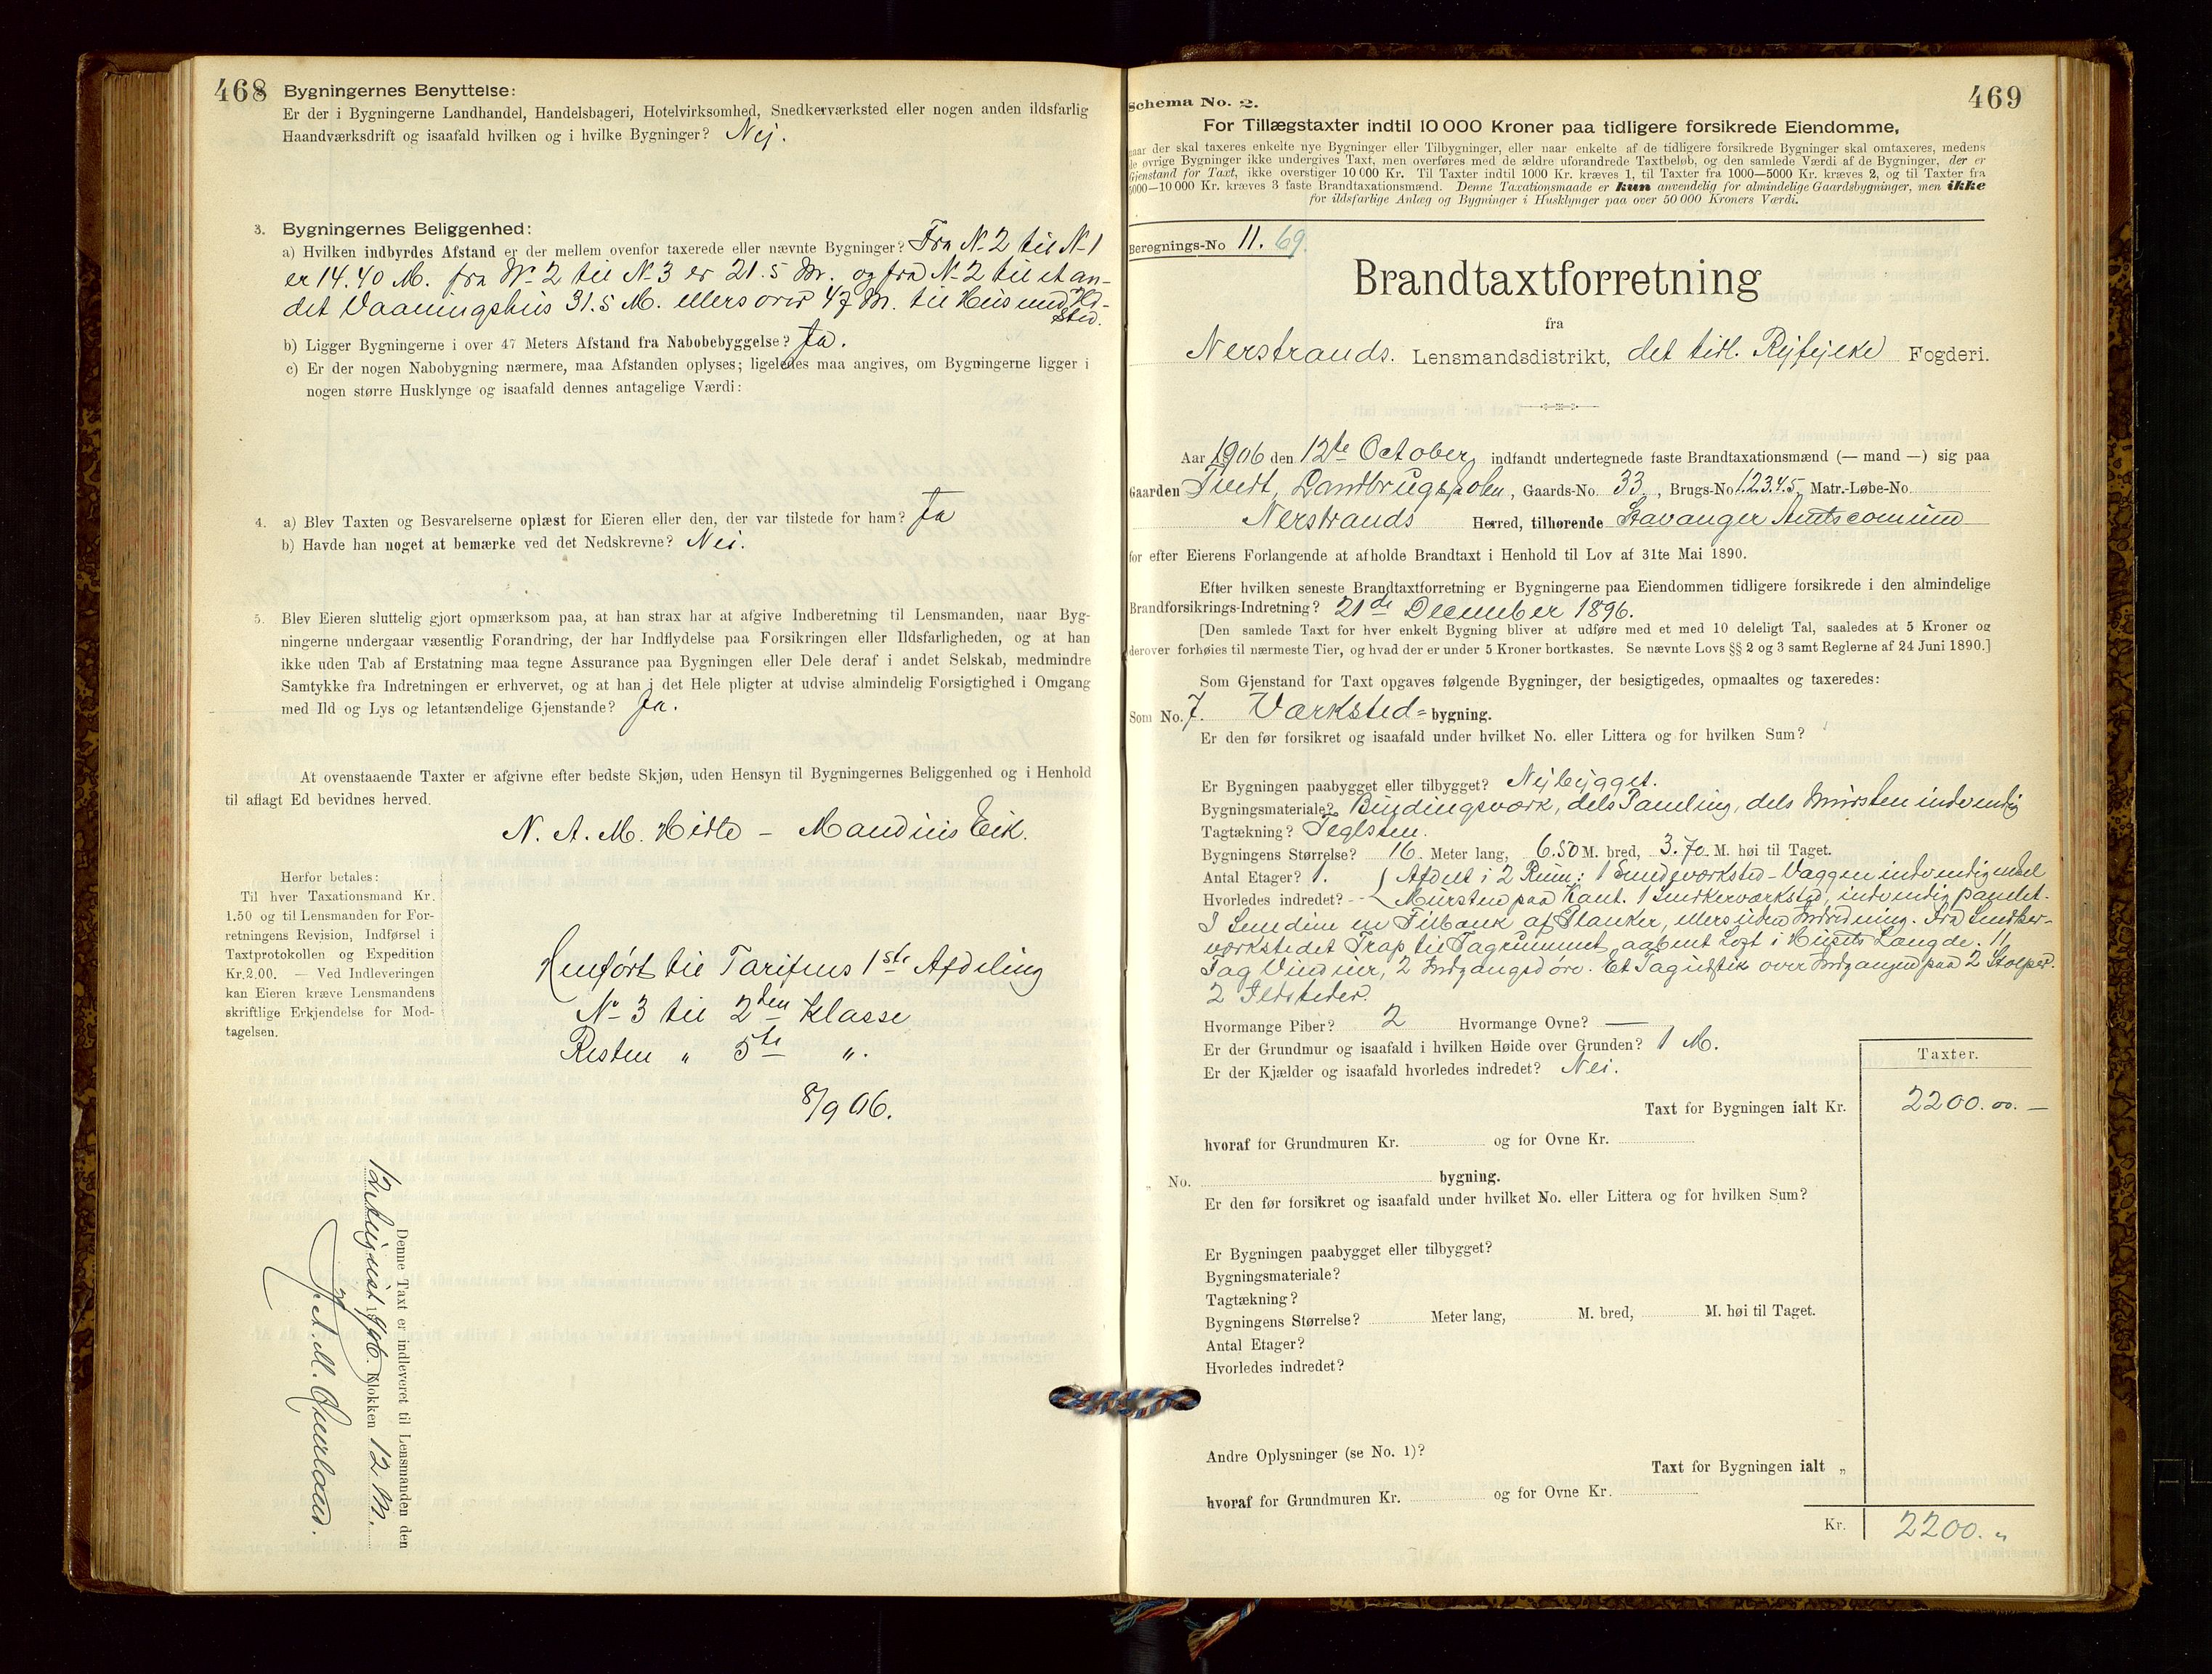 468
Bygningernes Benyttelse:
Er der i Bygningerne Landhandel, Handelsbageri, Hotelvirksomhed, Snedkerværksted eller nogen anden ildsfarlig
Haandværksdrift og isaafald hvilken og i hvilke Bygninger? Nej.
3. Bygningernes Beliggenhed:
a) Hvilken indbyrdes Afstand er der mellem ovenfor taxerede eller nævnte Bygninger? Fra No 2 til No 1
er 14.40 M. fra No 2 til No 3 er 21.5 M. og fra No 2 til et an-
det Vaaningshus 31.5 M. ellers over 47 M. til Hus med Ild-
sted.
b) Ligger Bygningerne i over 47 Meters Afstand fra Nabobebyggelse? Ja.
c) Er der nogen Nabobygning nærmere, maa Afstanden oplyses; ligeledes maa angives, om Bygningerne ligger i
nogen større Husklynge og isaafald dennes antagelige Værdi:
4. a) Blev Taxten og Besvarelserne oplæst for Eieren eller den, der var tilstede for ham? Ja
b) Havde han noget at bemærke ved det Nedskrevne? Nei.
5. Blev Eieren sluttelig gjort opmærksom paa, at han strax har at afgive Indberetning til Lensmanden, naar Byg-
ningerne undergaar væsentlig Forandring, der har Indflydelse paa Forsikringen eller Ildsfarligheden, og at han
ikke uden Tab af Erstatning maa tegne Assurance paa Bygningen eller Dele deraf i andet Selskab, medmindre
Samtykke fra Indretningen er erhvervet, og at han i det Hele pligter at udvise almindelig Forsigtighed i Omgang
med Ild og Lys og letantændelige Gjenstande? Ja.
At ovenstaaende Taxter er afgivne efter bedste Skjøn, uden Hensyn til Bygningernes Beliggenhed og i Henhold
til aflagt Ed bevidnes herved.
N. A. M. Hidle – Maudius Eik.
Herfor betales:
Til hver Taxationsmand Kr.
1.50 og til Lensmanden for For-
retningens Revision, Indførsel i
Taxtprotokollen og Expedition
Kr.2.00. — Ved Indleveringen
kan Eieren kræve Lensmandens
skriftlige Erkjendelse for Mod-
tagelsen.
Henført til Tarifens 1ste Afdeling
No 3 til 2den Klasse
Resten " 5te ".
8/9 06.
Denne Taxt er indleveret til Lensmanden den
Klokken 12 M.
469
Schema No. 2.
For Tillægstaxter indtil 10 000 Kroner paa tidligere forsikrede Eiendomme,
naar der skal taxeres enkelte nye Bygninger eller Tilbygninger, eller naar enkelte af de tidligere forsikrede Bygninger skal omtaxeres, medens
de øvrige Bygninger ikke undergives Taxt, men overføres med de ældre uforandrede Taxtbeløb, og den samlede Værdi af de Bygninger, der er
Gjenstand for Taxt, ikke overstiger 10 000 Kr. Til Taxter indtil 1000 Kr. kræves 1, til Taxter fra 1000—5000 Kr. kræves 2, og til Taxter fra
5000—10 000 Kr. kræves 3 faste Brandtaxationsmænd. Denne Taxationsmaade er kun anvendelig for almindelige Gaardsbygninger, men ikke
for ildsfarlige Anlæg og Bygninger i Husklynger paa over 50 000 Kroners Værdi.
Beregnings-No 11. 69.
Brandtaxtforretning
fra
Nerstrands. Lensmandsdistrikt, det tidl. Ryfylke Fogderi.
Aar 1906 den 12te October, indfandt undertegnede faste Brandtaxationsmænd (— mand —) sig paa
Gaarden Tvedt, Landbrugsskolen, Gaards-No. 33, Brugs-No 1.2.3.4.5, Matr.-Løbe-No.
Nerstrands Herred, tilhørende Stavanger Amtscomune
for efter Eierens Forlangende at afholde Brandtaxt i Henhold til Lov af 31te Mai 1890.
Efter hvilken seneste Brandtaxtforretning er Bygningerne paa Eiendommen tidligere forsikrede i den almindelige
Brandforsikrings-Indretning? 21de December 1896.
[Den samlede Taxt for hver enkelt Bygning bliver at udføre med et med 10 deleligt Tal, saaledes at 5 Kroner og
derover forhøies til nærmeste Tier, og hvad der er under 5 Kroner bortkastes. Se nævnte Lovs §§ 2 og 3 samt Reglerne af 24 Juni 1890.]
Som Gjenstand for Taxt opgaves følgende Bygninger, der besigtigedes, opmaaltes og taxeredes:
Som No. 7. Værksted- bygning.
Er den før forsikret og isaafald under hvilket No. eller Littera og for hvilken Sum?
Er Bygningen paabygget eller tilbygget? Nybygget.
Bygningsmateriale? Bindingsværk, dels Paneling, dels Mursten indvendig
Tagtækning? Teglsten.
Bygningens Størrelse? 16 Meter lang, 6.50 M. bred, 3.70 M. høi til Taget.
Antal Etager? 1. Afdelt i 2 Rum: 1 Smedeværksted – Væggen indvendig med
Hvorledes indredet? Mursten paa Kant. 1 Snedkerværksted, indvendig panelet.
I Smedien en Filbænk af Planker, ellers uden Indredning. Fra Snedker-
værkstedet Trap til Tagrummet, aabent Loft i Husets Længde. 11
Fag Vinduer, 2 Indgangsdøre. Et Tagudstik over Indgangen paa 2 Stolper.
2 Ildsteder.
Hvormange Piber? 2 Hvormange Ovne? —
Er der Grundmur og isaafald i hvilken Høide over Grunden? 1 M.
Er der Kjælder og isaafald hvorledes indredet? Nei.
Taxter.
Taxt for Bygningen ialt Kr. 2200.00. —
hvoraf for Grundmuren Kr. og for Ovne Kr.
„ No. bygning.
Er den før forsikret og isaafald under hvilket No. eller Littera og for hvilken Sum?
Er Bygningen paabygget eller tilbygget?
Bygningsmateriale?
Tagtækning?
Bygningens Størrelse? Meter lang, M. bred, M. høi til Taget.
Antal Etager?
Hvorledes indredet?
Andre Oplysninger (se No. 1)?
Taxt for Bygningen ialt „
hvoraf for Grundmuren Kr. og for Ovne Kr.
Kr. 2200. „